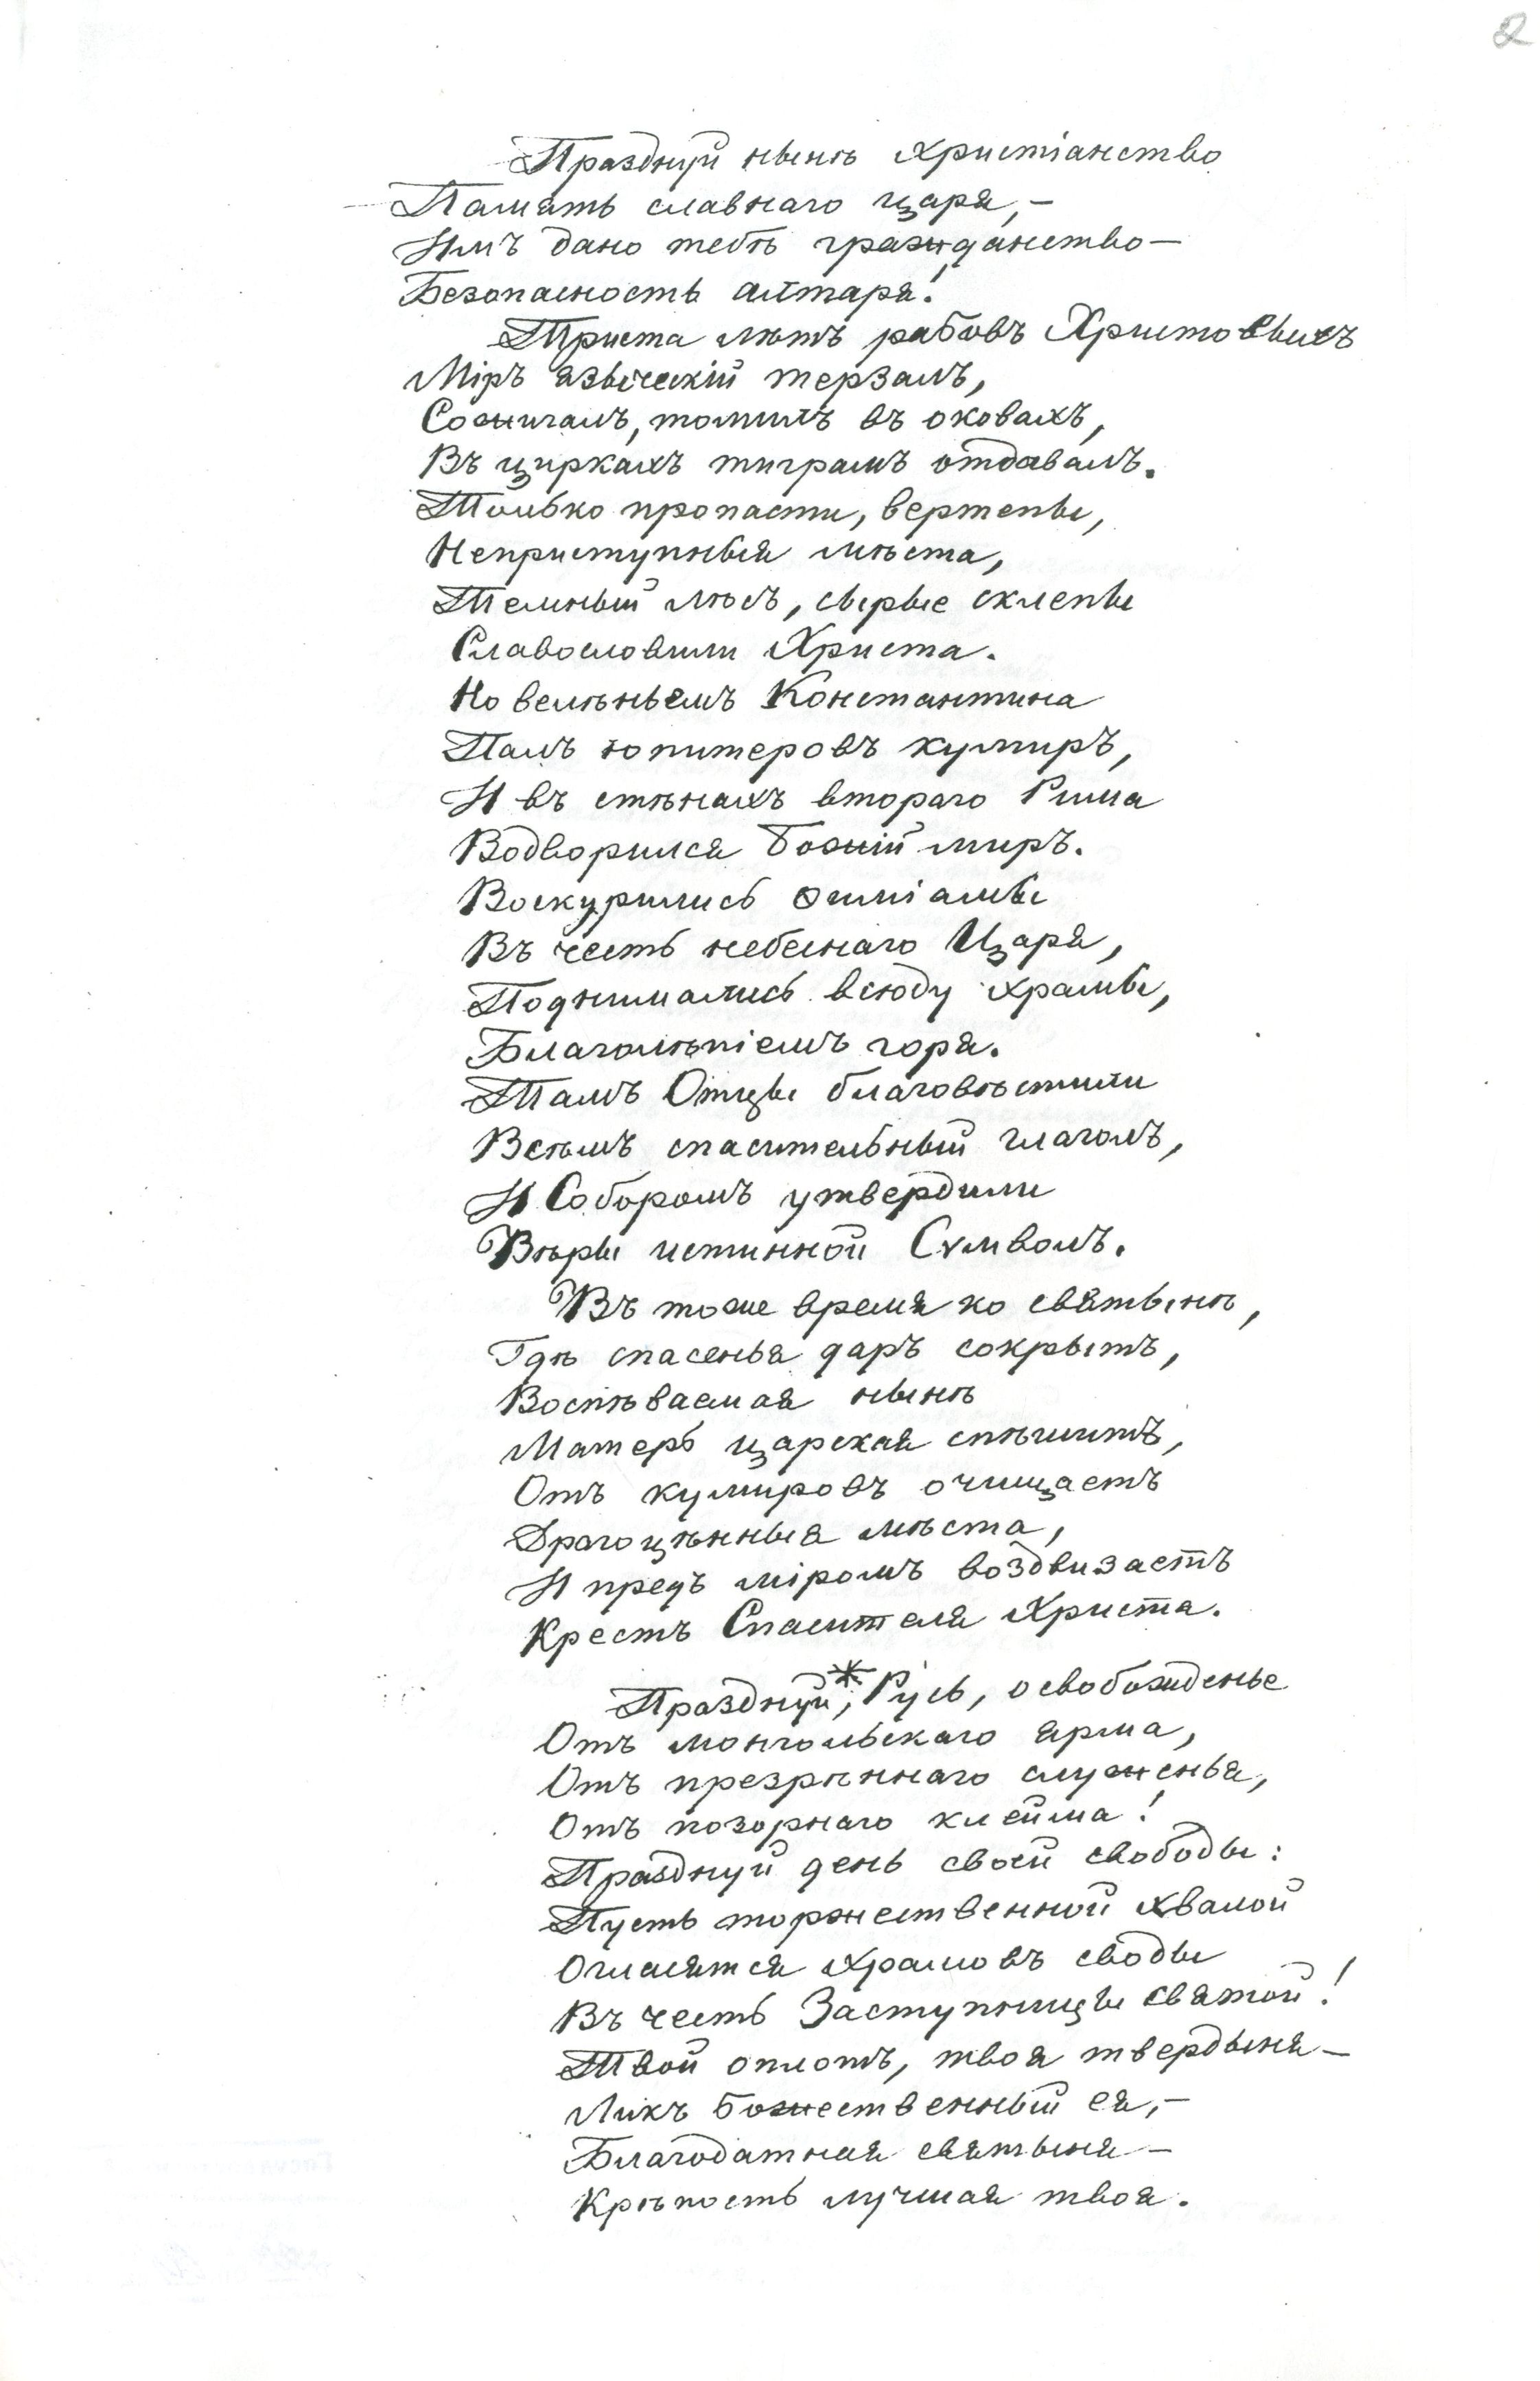 2
Празднуй нынѣ христіанство
Память славнаго царя,—
Имъ дано тебѣ гражданство—
Безопасность алтаря!
Триста лѣтъ рабовъ Христовыхъ
Міръ языческій терзалъ,
Сожигалъ, томилъ въ оковахъ,
Въ циркахъ тиграмъ отдавалъ.
Только пропасти, вертепы,
Неприступныя мѣста,
Темный лѣсъ, сырые склепы
Славословили Христа.
Но велѣньемъ Константина
Палъ юпитеровъ кумиръ,
И въ стѣнахъ втораго Рима
Водворился Божій миръ.
Воскурились ѳиміамы
Въ честь небеснаго Царя,
Поднимались всюду храмы,
Благолѣпіемъ горя.
Тамъ Отцы благовѣстили
Всѣмъ спасительный глаголъ,
И Соборомъ утвердили
Вѣры истинной Сѵмволъ.
Въ тоже время ко святынѣ,
Гдѣ спасенья даръ сокрытъ,
Воспѣваемая нынѣ
Матерь царская спѣшитъ,
Отъ кумировъ очищаетъ
Драгоцѣнныя мѣста,
И предъ міромъ воздвизаетъ
Крестъ Спасителя Христа.
Празднуй*, Русь, освобожденье
Отъ монгольскаго ярма,
Отъ презрѣннаго служенья,
Отъ позорнаго клейма!
Празднуй день своей свободы:
Пусть торжественной хвалой
Огласятся храмовъ своды
Въ честь Заступницы святой!
Твой оплотъ, твоя твердыня—
Ликъ божественный ея,—
Благодатная святыня—
Крѣпость лучшая твоя.